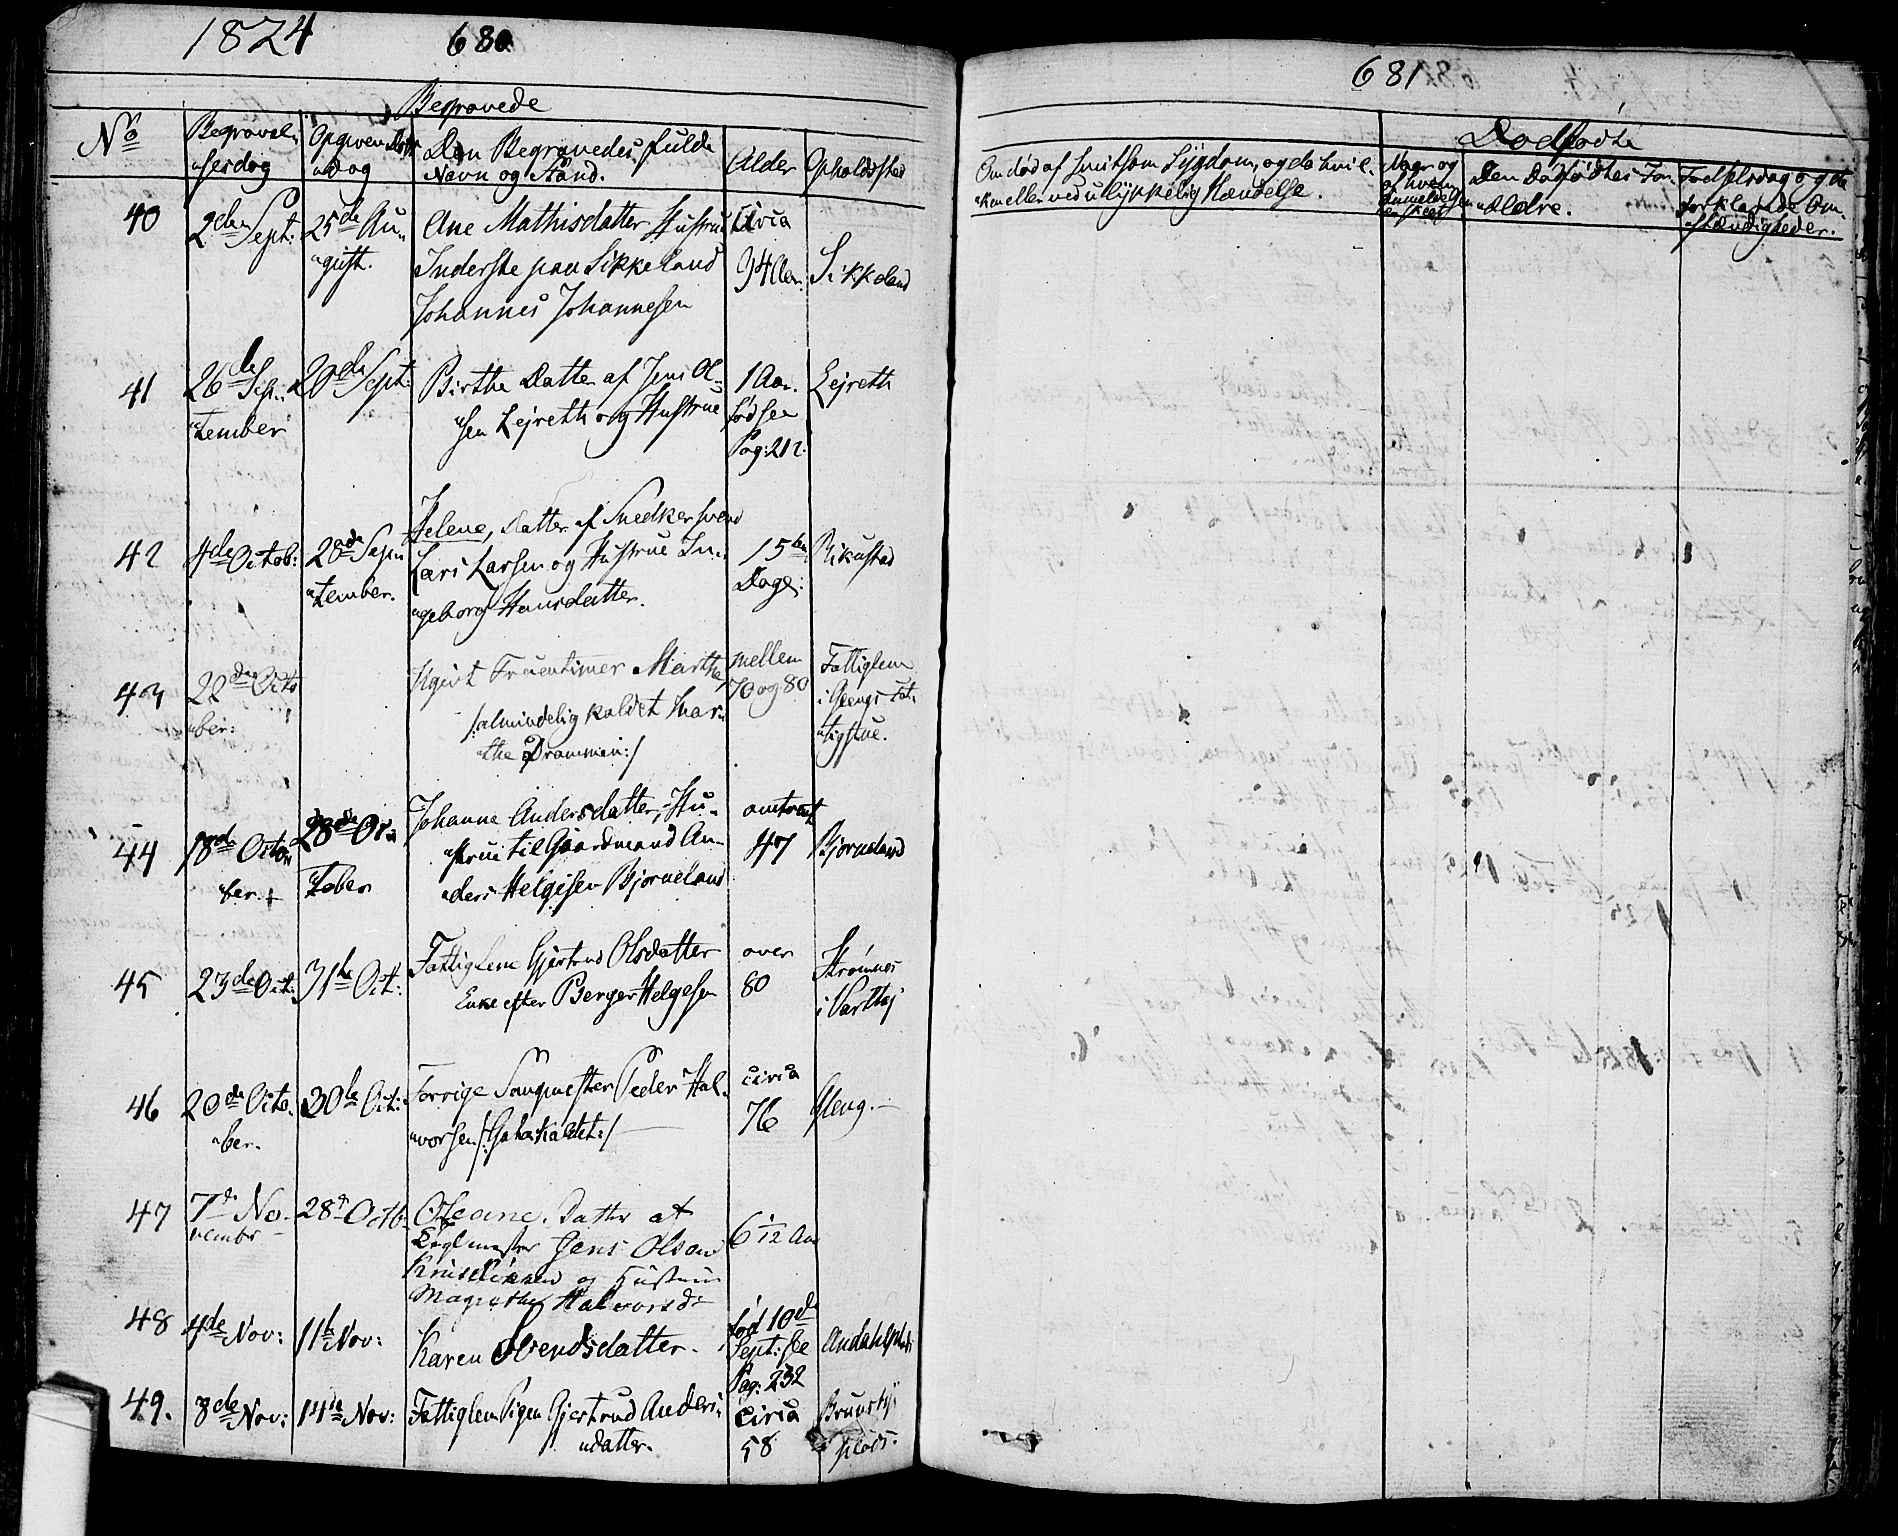 1824
680
Begravede
No
Begravel-
sesdag
Den Begravedes fulde
Navn og Stand.
Alder
Opholdssted
40
2den Sept:
25de Au-
gust.
Ane Mathisdatter Hustrue
Inderste paa Sikkeland
Johannes Johannesen
Circa
94 Aar.
Sikkeland
41
26de Sep-
tember
20de Sept:
Birthe Datter af Jens Ol-
sen Lejreth og Hustrue
1 Aar.
fød see
Pag: 212.
Lejreth
42
4de Octob:
28de Sep-
tember.
Helene, Datter af Snedkersvend
Lars Larsen og Hustrue In-
geborg Hansdatter.
15ten
Dage.
Rikustad
43
22de Octo
ber:
Ugivt Fruentimer Marthe,
/:almindelig kaldet Mar-
the Drammen:/
mellem
70 og 80
Fattiglem
i Glengs Fat-
tigstue.
44
18de Octo-
ber.
28de Oc-
tober
Johanne Andersdatter, Hu-
strue til Gaardmand An-
ders Helgesen Bjørneland
omtrent
47
Bjørneland
45
23de Oct:
31te Oct:
Fattiglem Gjertrud Olsdatter
Enke efter Berger Helgesen
over
80
Strømnes
i Varteig
46
20de Octo-
ber.
30te Oct:
Forrige Saugmester Peder Hal-
vorsen
circa
76
Gleng.
47
7de No-
vembr
28de Octb
Oleane, Datter af
Teglmester Jens Olsen
og Hustrue
Magrethe Halvorsdr
6 1/12 Aar
48
4de Nov:
11te Nov:
Karen Svendsdatter.
fød 10de
Sept: see
Pag: 232
49.
8de Nov:
14de Nov:
Fattiglem Pigen Gjertrud Anders-
datter.
circa
58
plads.
681
Dødfødte
Om død af Smitsom Sygdom, og da hvil-
ken eller ved ulykkelig Hændelse.
Naar og
af hvem
Anmeldelsen
er skeet
Den Dødfødtes For-
ældre.
Fødselsdag og de
forklarende Om-
stændigheder.